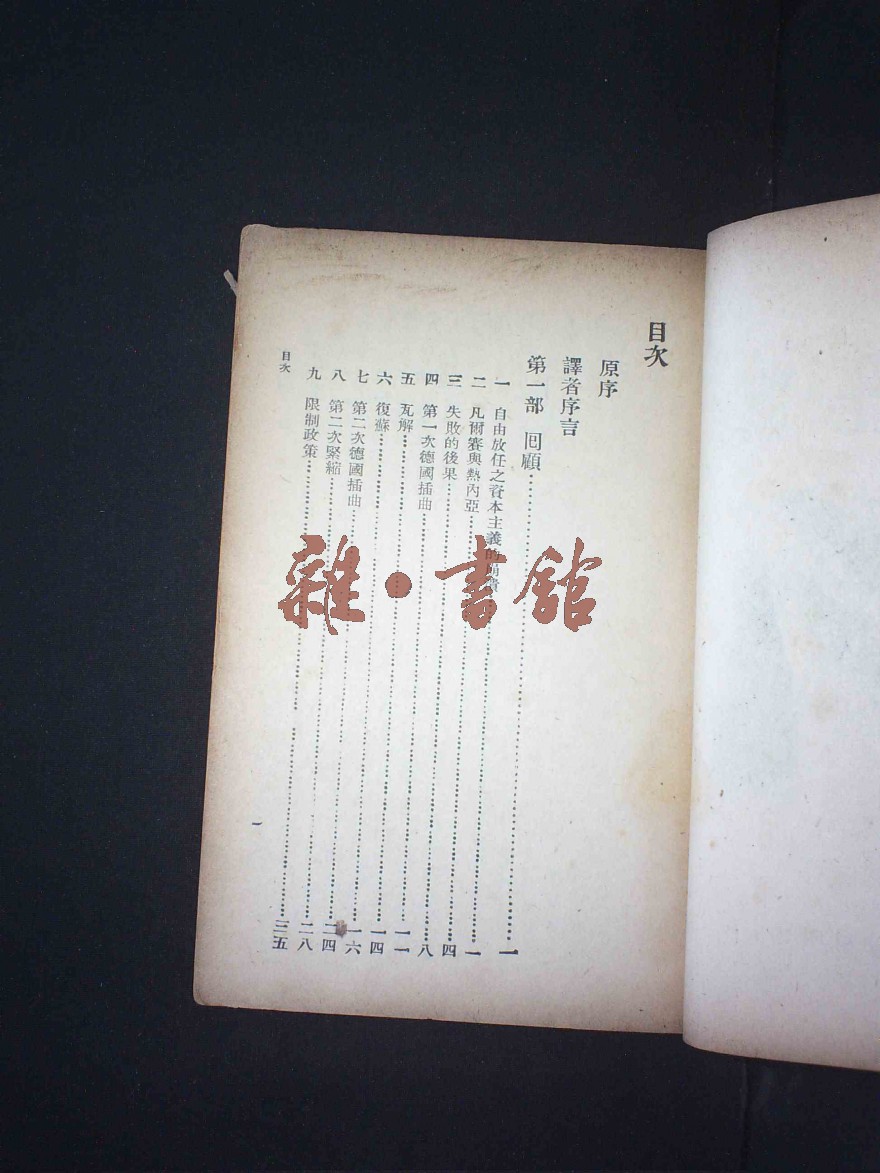 目次
原序
譯者序言
第一部 囘顧……一
一 自由放任之資本主義的……一
二 凡爾賽與熱內亞……四
三 失敗的後果……八
四 第一次德國插曲……一一
五 瓦解……一四
六 復蘇……一六
七 第二次德國插曲……二四
八 第二次緊縮……二八
九 限制政策……三五
目次
一
雜·書館